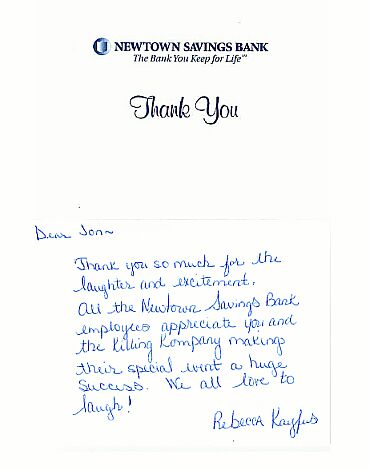 NEWTOWN SAVINGS BANK
The Bank You Keep for Life℠
Thank You
Dear Jon~
Thank you so much for the
laughter and excitement.
All the Newtown Savings Bank
employees appreciate you and
the Killing Kompany making
their special event a huge
Success. We all love to
laugh!
Rebecca